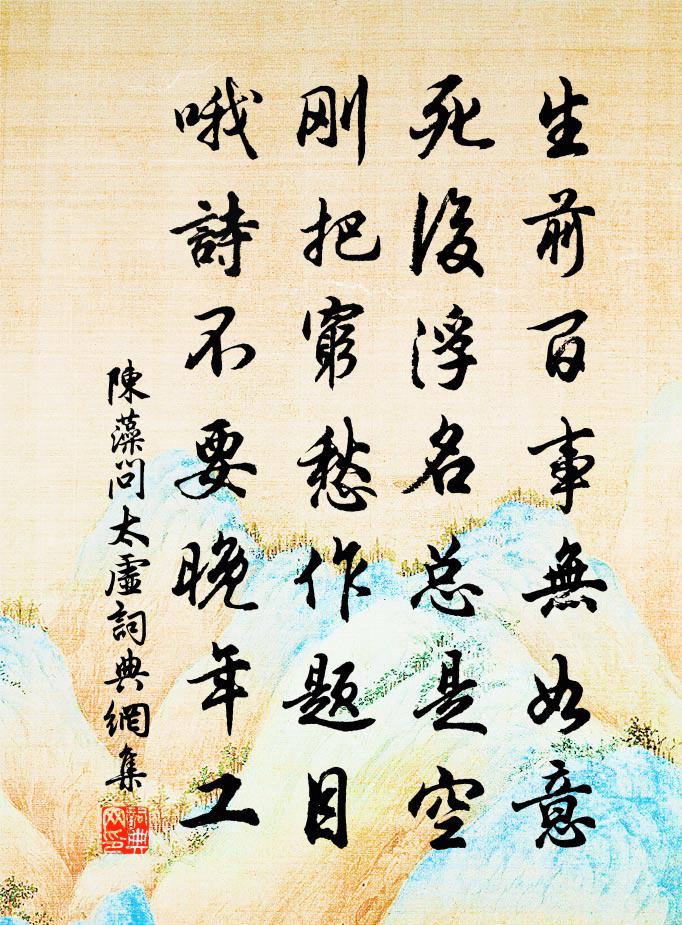 生前百事無如意
死後浮名总是空
刚把窮愁作题目
哦詩不要晚年工
陳藻問太虛詞典網集
詞典
网印